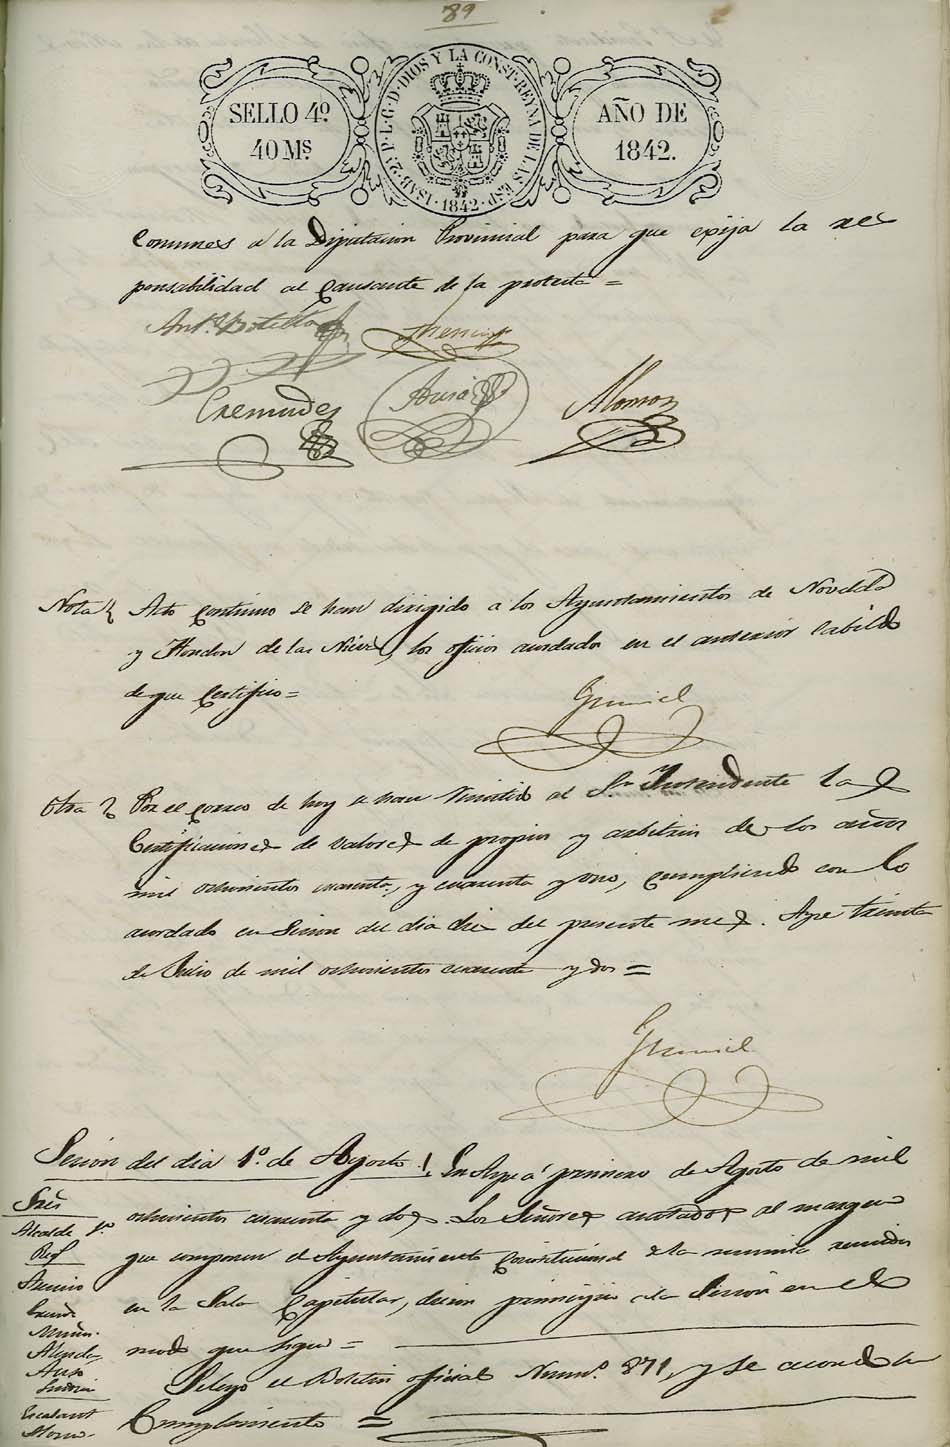 89
SELLO 4º
40 Ms
ISAB. 2ª P. L. G. D. DIOS Y LA CONST. REYNA DE LAS ESP.
1842
AÑO DE
1842.
comunes á la Diputacion Provincial para que exija la res
ponsabilidad al Causante de la protesta =
Antº Botella
Cremades
Alonso
Nota Acto continuo se han dirigido a los Ayuntamientos de Novelda
y Hondon de las Nieves, los oficios acordados en el anterior Cabildo
de que Certifico =
Otra Por el correo de hoy se han remitido al Sr Intendente las
Certificaciones de valores de propios y arbitrios de los años
mil ochocientos cuarenta, y cuarenta y uno, cumpliendo con lo
acordado en Sesion del dia diez del presente mes. Aspe treinta
de Julio de mil ochocientos cuarenta y dos =
Sesion del dia 1º. de Agosto En Aspe á primero de Agosto de mil
ochocientos cuarenta y dos. Los Señores anotados al margen
que componen el Ayuntamiento Constitucional de la misma reunidos
en la Sala Capitular, dieron principio a la Sesion en el
modo que sigue =
Se leyo el Boletin oficial Numº. 871, y se acordó su
Cumplimiento =
Sres
Alcalde 1º
Reg
Asencio
Aznar
Escalant